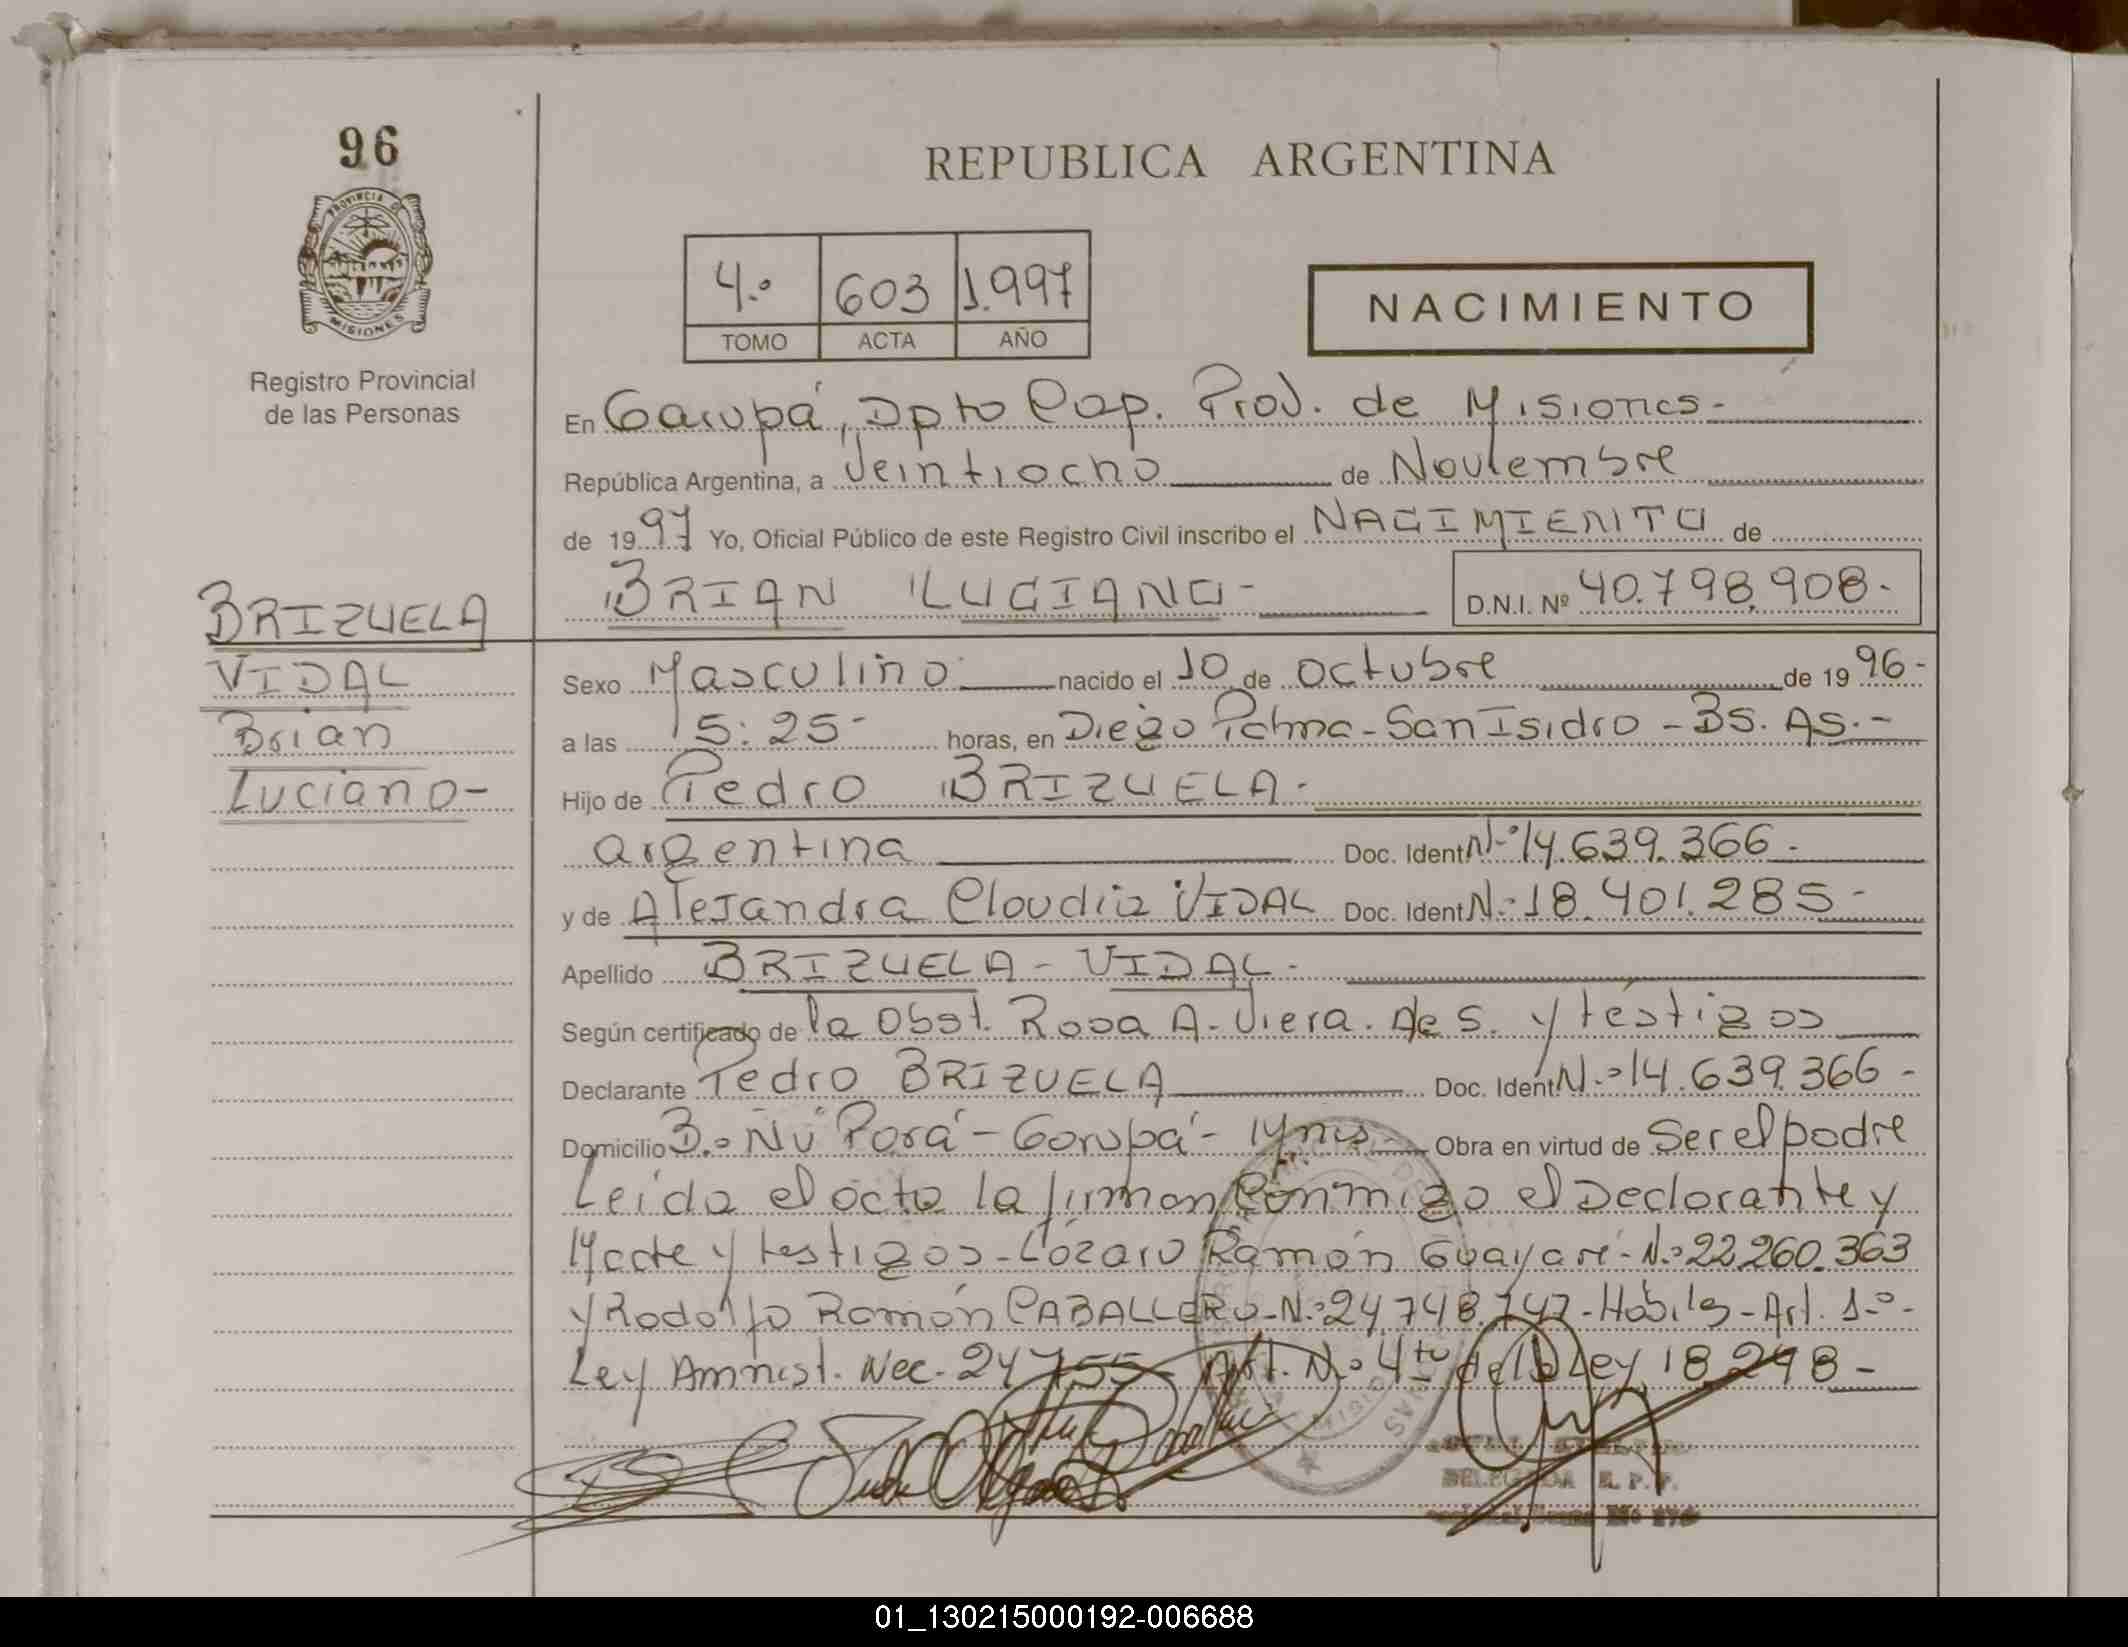 96
REPUBLICA ARGENTINA
PROVINCIA DE
MISIONES
Registro Provincial
de las Personas
4.º 603 1.997
TOMO ACTA AÑO
NACIMIENTO
En Garupá, Dpto Cap. Prov. de Misiones-
República Argentina, a Veintiocho de Noviembre
de 1997 Yo, Oficial Público de este Registro Civil inscribo el NACIMIENTO de
BRIAN LUCIANO- D.N.I. Nº 40.798.908-
BRIZUELA
VIDAL
Brian
Luciano-
Sexo Masculino nacido el 10 de octubre de 1996-
a las 15:25- horas, en Diego Palma-San Isidro-Bs. As.-
Hijo de Pedro BRIZUELA-
argentina Doc. Ident N.º 14.639.366-
y de Alejandra Claudia VIDAL Doc. Ident N.º 18.401.285-
Apellido BRIZUELA-VIDAL-
Según certificado de la Obst. Rosa A. Viera. de S. y testigos
Declarante Pedro BRIZUELA Doc. Ident. N.º 14.639.366-
Domicilio B.º Ñu Porá-Garupá-Mnes- Obra en virtud de Ser el padre
Leída el acta la firman Conmigo el Declarante y
Madre y testigos-Lázaro Ramón Guayaré-N.º 22.260.363
y Rodolfo Ramón CABALLERO-N.º 24.748.747-Hábiles-Art. 1.º-
Ley Amnist. Nac. 24755- Art. N.º 4to de la Ley 18.248-
DELEGADA R. P. P.
01_130215000192-006688